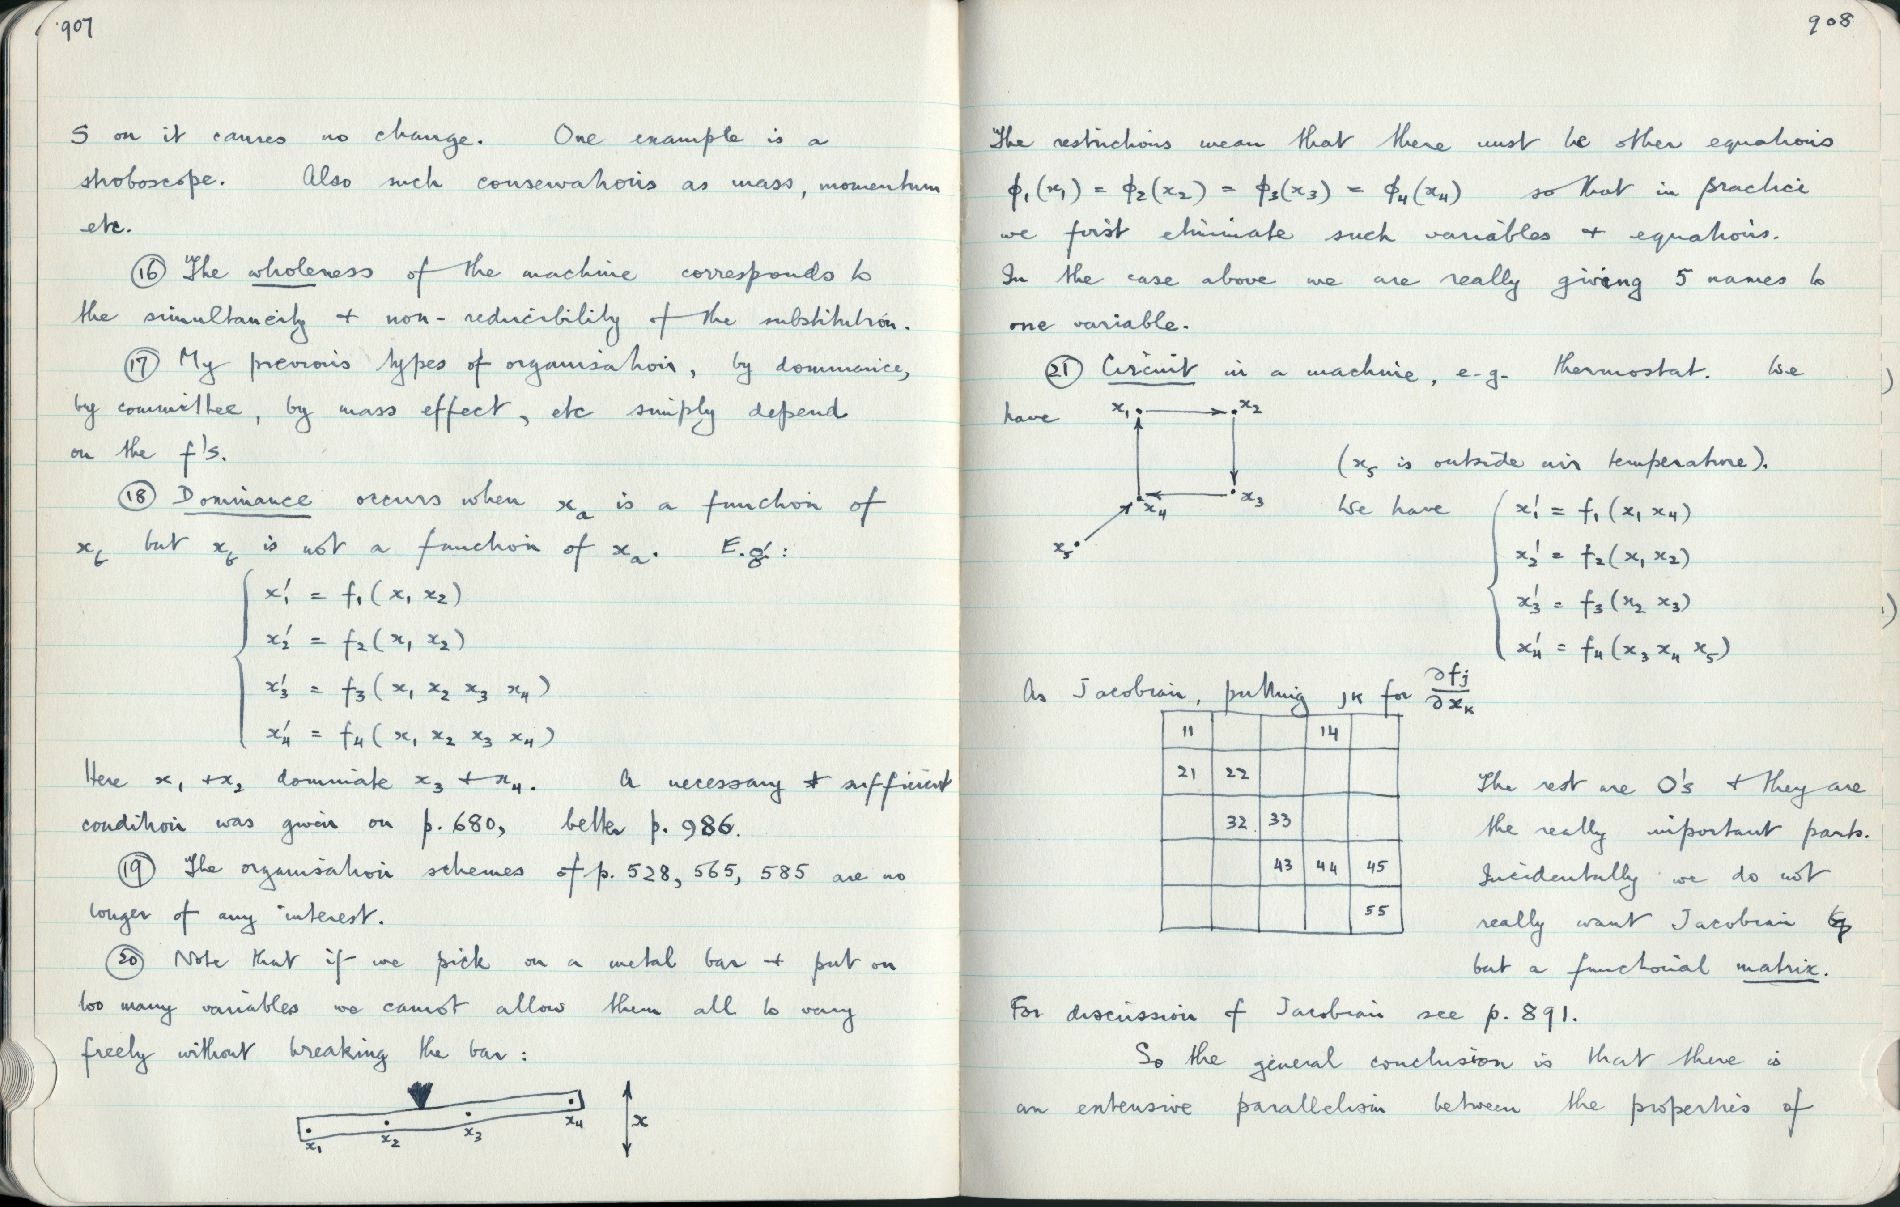 907
S on it causes no change. One example is a
stroboscope. Also such conservations as mass, momentum
etc.
⑯ The wholeness of the machine corresponds to
the simultaneity + non-reducibility of the substitution.
⑰ My previous types of organisation, by dominance,
by committee, by mass effect, etc simply depend
on the f's.
⑱ Dominance occurs when xₐ is a function of
x_b but x_b is not a function of xₐ. E.g.:
x₁' = f₁(x₁ x₂)
x₂' = f₂(x₁ x₂)
x₃' = f₃(x₁ x₂ x₃ x₄)
x₄' = f₄(x₁ x₂ x₃ x₄)
Here x₁ + x₂ dominate x₃ + x₄. A necessary + sufficient
condition was given on p. 680, better p. 986.
⑲ The organisation schemes of p. 528, 565, 585 are no
longer of any interest.
⑳ Note that if we pick on a metal bar + put on
too many variables we cannot allow them all to vary
freely without breaking the bar:
x₁ x₂ x₃ x₄ x
908
The restrictions mean that there must be other equations
ϕ₁(x₁) = ϕ₂(x₂) = ϕ₃(x₃) = ϕ₄(x₄) so that in practice
we first eliminate such variables + equations.
In the case above we are really giving 5 names to
one variable.
㉑ Circuit in a machine, e.g. thermostat. We
have x₁ x₂
(x₅ is outside air temperature).
x₄ x₃
x₅
We have x₁' = f₁(x₁ x₄)
x₂' = f₂(x₁ x₂)
x₃' = f₃(x₂ x₃)
x₄' = f₄(x₃ x₄ x₅)
As Jacobian, putting jk for ∂fⱼ/∂xₖ
11 14
21 22
32 33
43 44 45
55
The rest are 0's + they are
the really important parts.
Incidentally we do not
really want Jacobian
but a functional matrix.
For discussion of Jacobian see p. 891.
So the general conclusion is that there is
an extensive parallelism between the properties of